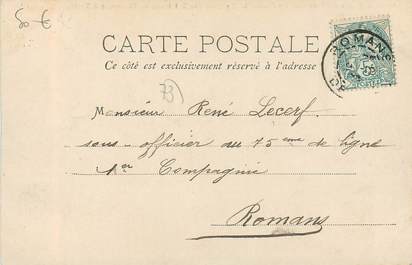 50 €
CARTE POSTALE
Ce côté est exclusivement réservé à l'adresse
ROMANS
73
Monsieur René Lecerf
sous-officier au 75 eme de ligne
1er Compagnie
Romans